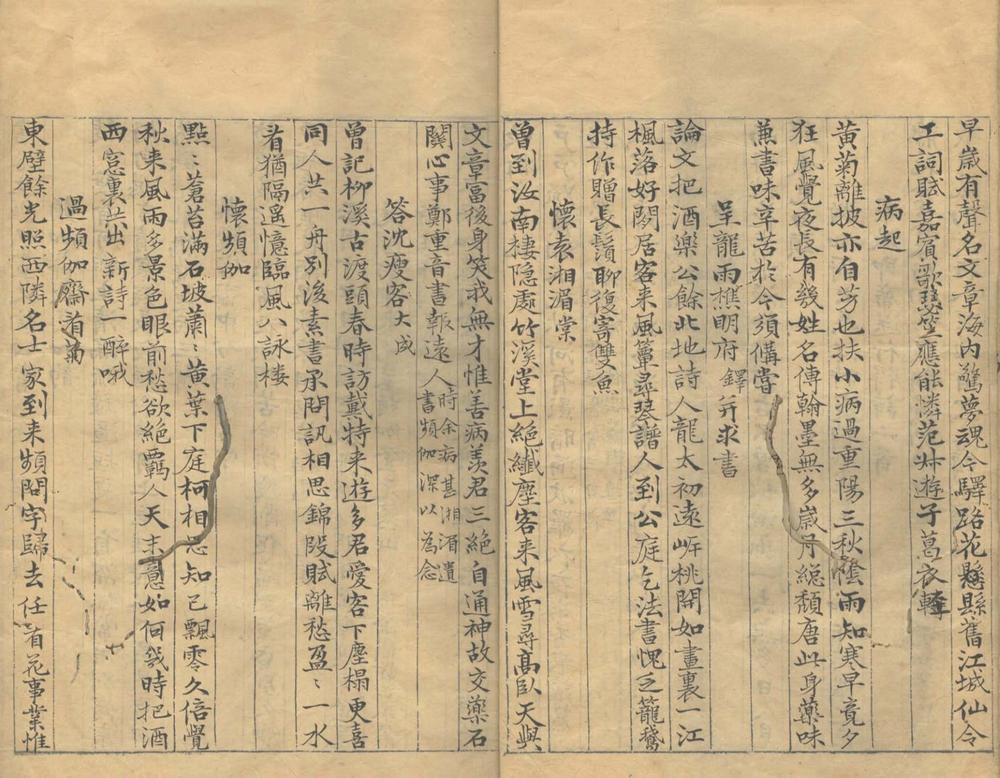 早歲有聲名文章海內驚夢魂今驛路花縣舊江城仙令
工詞賦嘉賓歌瑟笙應能憐范叔遊子葛衣輕
病起
黃菊離披亦自芳也扶小病過重陽三秋陰雨知寒早竟夕
狂風覺夜長有幾姓名傳翰墨無多歲月總頹唐此身藥味
兼書味辛苦於今須備嘗
呈龍雨樵明府鐸并求書
論文把酒樂公餘此地詩人龍太初遠岸桃開如畫裏一江
楓落好閒居客來風篁尋琴譜人到公庭乞法書愧乏籠鵝
持作贈長鬚聊復寄雙魚
懷袁湘湄棠
曾到汝南棲隱處竹溪堂上絕纖塵客來風雪尋高臥天與
文章富後身笑我無才惟善病羨君三絕自通神故交藥石
關心事鄭重音書報遠人時余病甚湘湄遺書頻伽深以為念
答沈瘦客大成
曾記柳溪古渡頭春時訪戴特來遊多君愛客下塵榻更喜
同人共一舟別後素書承問訊相思錦段賦離愁盈〻一水
看猶隔遥憶臨風八詠樓
懷頻伽
點〻蒼苔滿石坡蕭〻黃葉下庭柯相思知己飄零久倍覺
秋來風雨多景色眼前愁欲絕羈人天末意如何幾時把酒
西窓裏共出新詩一醉哦
過頻伽齋看菊
東壁餘光照西隣名士家到來頻問字歸去任看花事業惟